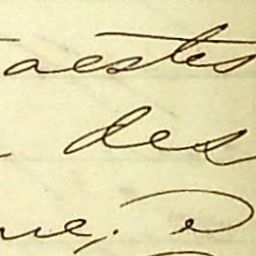 aestes
des
ue; e